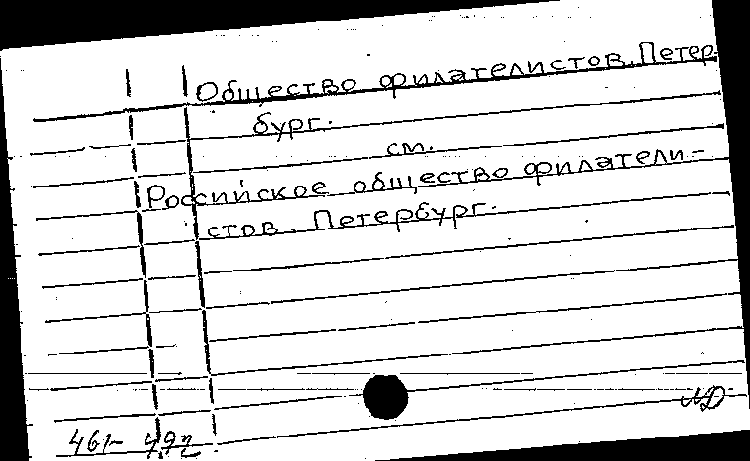 Общество филателистов. Петер-
бург.
см.
Российское общество филатели-
стов. Петербург.
461-492